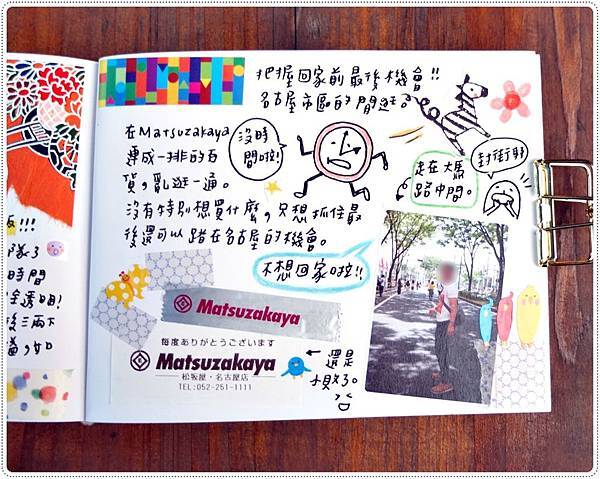 把握回家前最後機會!!
名古屋市區的閒逛了
在Matsuzakaya
連成一排的百
貨,亂逛一通。
沒有特別想買什麼,只想抓住最
後還可以踏在名古屋的機會。
沒時
間啦!
封街時
走在大馬
路中間。
不想回家啦!!
Matsuzakaya
毎度ありがとうございます
Matsuzakaya
松坂屋・名古屋店
TEL:052-251-1111
還是
!!!
隊了
時間